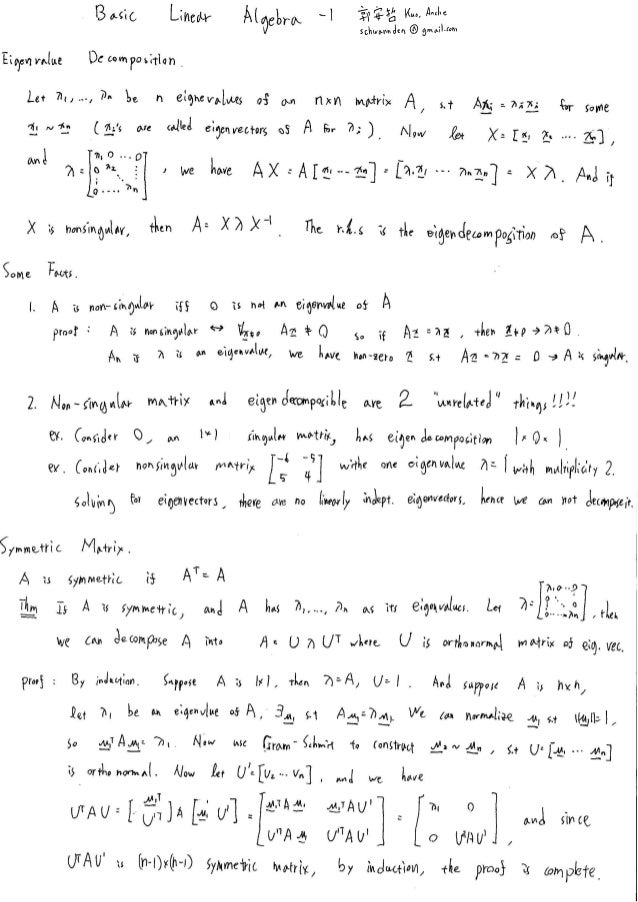 Basic Linear Algebra -1 郭安哲 Kuo, Anche
schwannden @ gmail.com
Eigenvalue Decomposition.
Let λ1, ..., λn be n eignevalues of an n×n matrix A, s.t Axi = λixi for some
x1 ~ xn ( xi's are called eigenvectors of A for λi ). Now let X = [x1 x2 .... xn],
and λ = [λ1 0 ... 0; 0 λ2 ⋱ ⋮; ⋮ ⋱; 0 .... λn] , we have AX = A[x1 --- xn] = [λ1x1 ... λnxn] = Xλ. And if
X is nonsingular, then A = XλX⁻¹. The r.h.s is the eigendecomposition of A.
Some Facts.
1. A is non-singular iff 0 is not an eigenvalue of A
proof : A is nonsingular ↔ ∀x≠0 Ax ≠ 0 so if Ax = λx, then x≠0 → λ≠0.
An if λ is an eigenvalue, we have non-zero x s.t Ax = λx = 0 → A is singular.
2. Non-singular matrix and eigen decomposible are 2 "unrelated" things!!!!
ex. Consider 0, an 1×1 singular matrix, has eigen decomposition 1×0×1.
ex. Consider nonsingular matrix [-6 -5; 5 4] withe one eigenvalue λ=1 with multiplicity 2.
Solving for eigenvectors, there are no linearly indept. eigenvectors, hence we can not decompose it.
Symmetric Matrix.
A is symmetric if Aᵀ = A
Thm If A is symmetric, and A has λ1, ..., λn as its eigenvalues. Let λ = [λ1 0 ... 0; 0 ⋱ ⋮; ⋮ ⋱ 0; 0 ... λn], then
we can decompose A into A = UλUᵀ where U is orthonormal matrix of eig. vec.
proof : By induction. Suppose A is 1×1, then λ=A, U=1. And suppose A is n×n,
let λ1 be an eigenvlue of A, ∃u1 s.t Au1 = λu1. We can normalize u1 s.t ‖u1‖=1,
so u1ᵀAu1 = λ1. Now use Gram-Schmit to construct u2 ~ un, s.t U = [u1 ... un]
is orthonormal. Now let U' = [v2 ... vn], and we have
UᵀAU = [u1ᵀ; U'ᵀ] A [u1 U'] = [u1ᵀAu1 u1ᵀAU'; U'ᵀAu1 U'ᵀAU'] = [λ1 0; 0 U'ᵀAU'], and since
U'ᵀAU' is (n-1)×(n-1) symmetric matrix, by induction, the proof is complete.